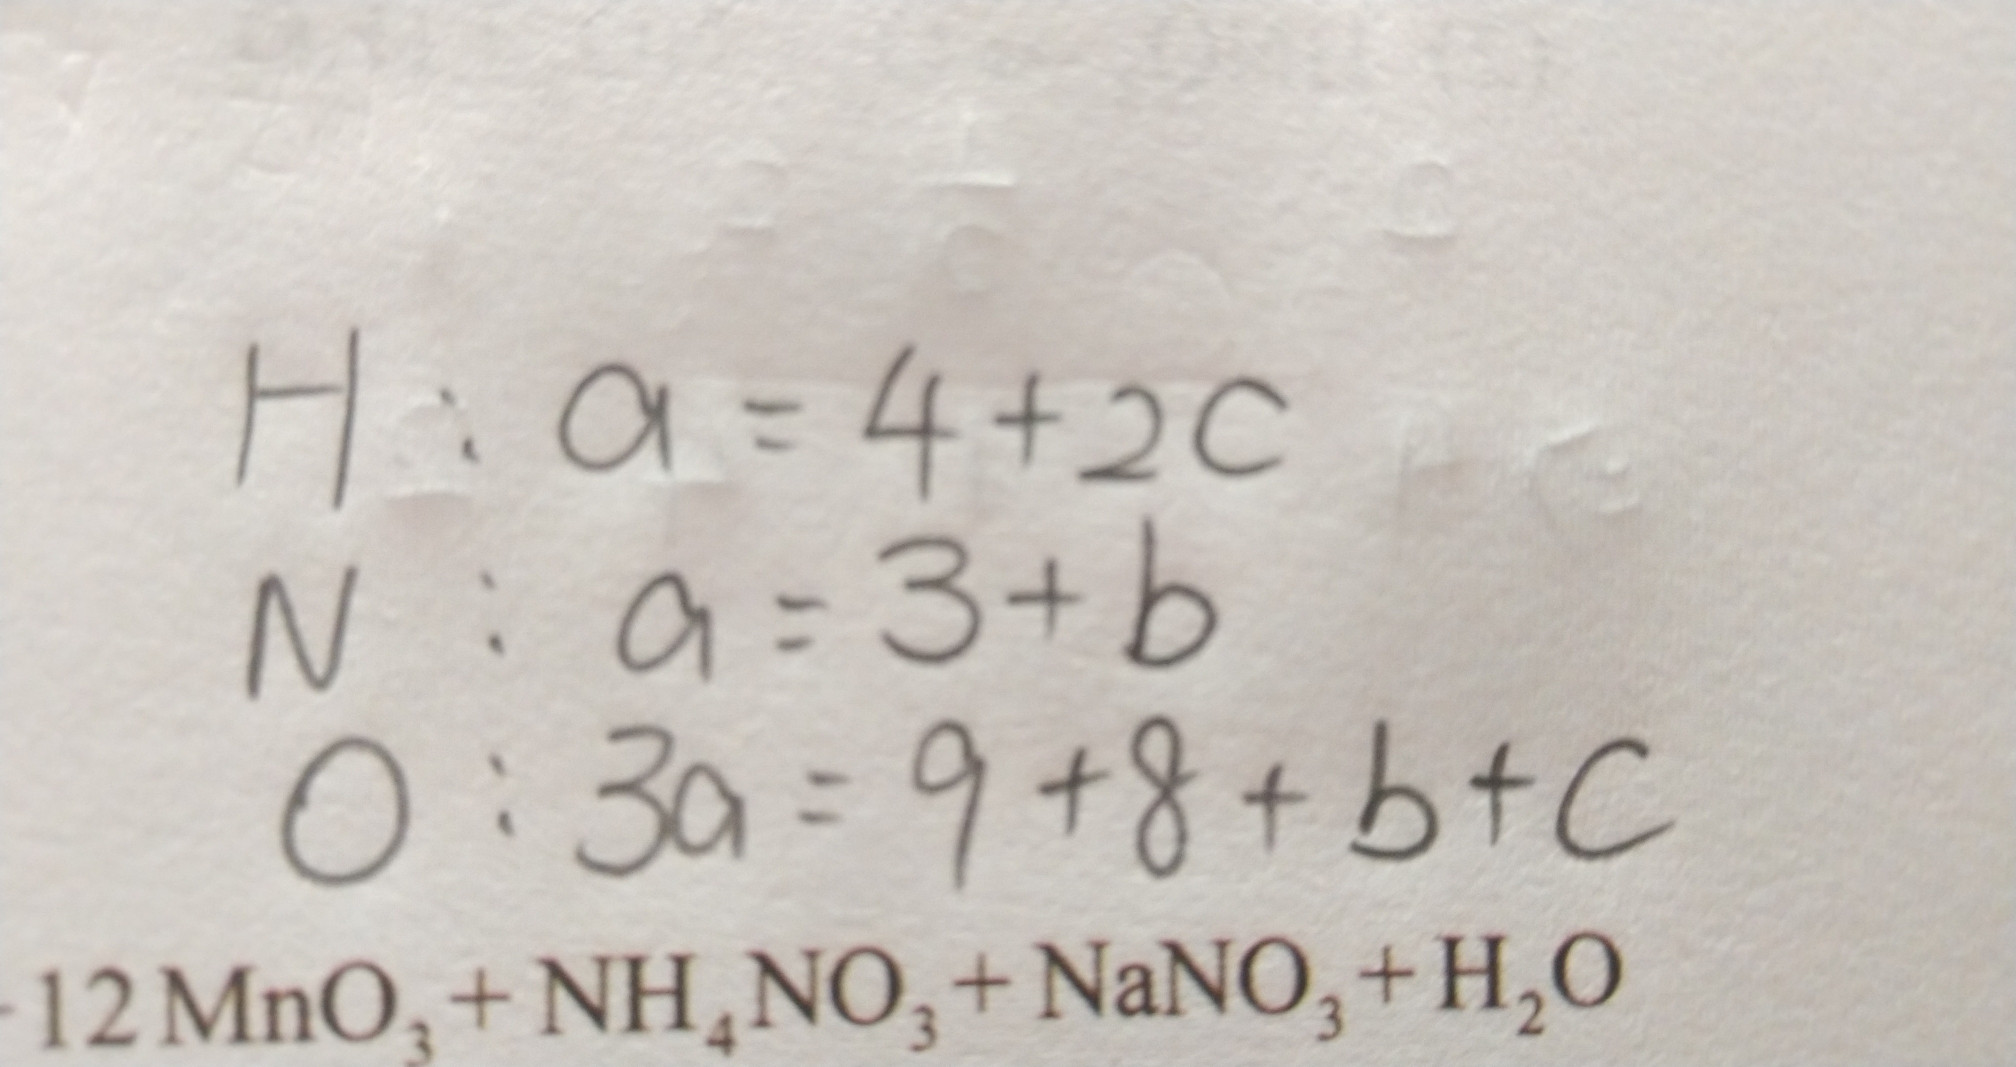 H : a = 4 + 2c
N : a = 3 + b
O : 3a = 9 + 8 + b + c
12 MnO₃ + NH₄NO₃ + NaNO₃ + H₂O